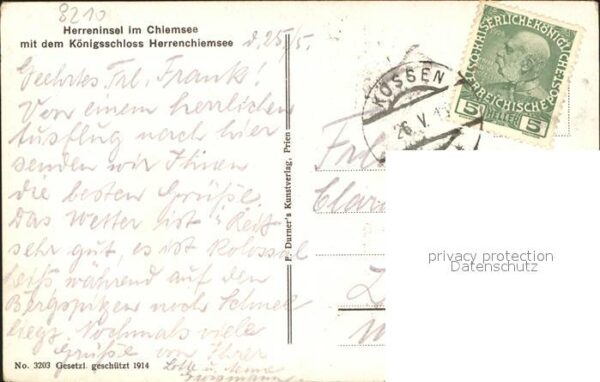 8210
Herreninsel im Chiemsee
mit dem Königsschloss Herrenchiemsee
d. 25/5.
Geehrtes Frl. Frank!
Von einem herrlichen
Ausflug nach hier
senden wir Ihnen
die besten Grüße.
Das Wetter ist
sehr gut, es ist kolossal
heiß während auf den
Bergspitzen noch Schnee
liegt. Nochmals viele
Grüße von Ihrer
Lotte u.
No. 3203 Gesetzl. geschützt 1914
F. Durner's Kunstverlag, Prien
KÖSSEN
26. V.
KAISERLICHE KÖNIGLICHE
ÖSTERREICHISCHE POST
5 HELLER 5
1908
Frl.
privacy protection
Datenschutz